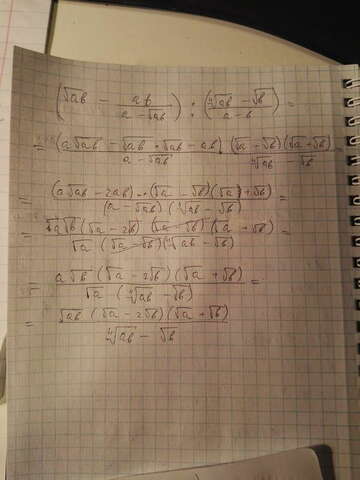 (√ab − ab/(a − √ab)) : ((∜ab − √b)/(a − b)) =
= (a√ab − √ab · √ab − ab)/(a − √ab) · (√a − √b)(√a + √b)/(∜ab − √b)
= (a√ab − 2ab) · (√a − √b)(√a + √b)/((a − √ab)(∜ab − √b)) =
= √a√b(√a − 2√b)(√a − √b)(√a + √b)/(√a (√a − √b)(∜ab − √b)) =
= a√b (√a − 2√b)(√a + √b)/(√a (∜ab − √b)) =
= √ab (√a − 2√b)(√a + √b)/(∜ab − √b)